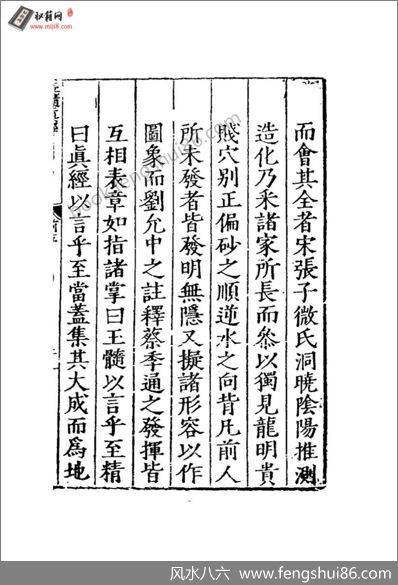 秘籍网
www.miji8.com
而會其全者宋張子微氏洞曉陰陽推測
造化乃釆諸家所長而叅以獨見龍明貴
賤穴别正偏砂之順逆水之向背凡前人
所未發者皆發明無隱又擬諸形容以作
圖象而劉允中之註釋蔡季通之發揮皆
互相表章如指諸掌曰王髓以言乎至精
曰眞經以言乎至當蓋集其大成而爲地
风水八六 www.fengshui86.com